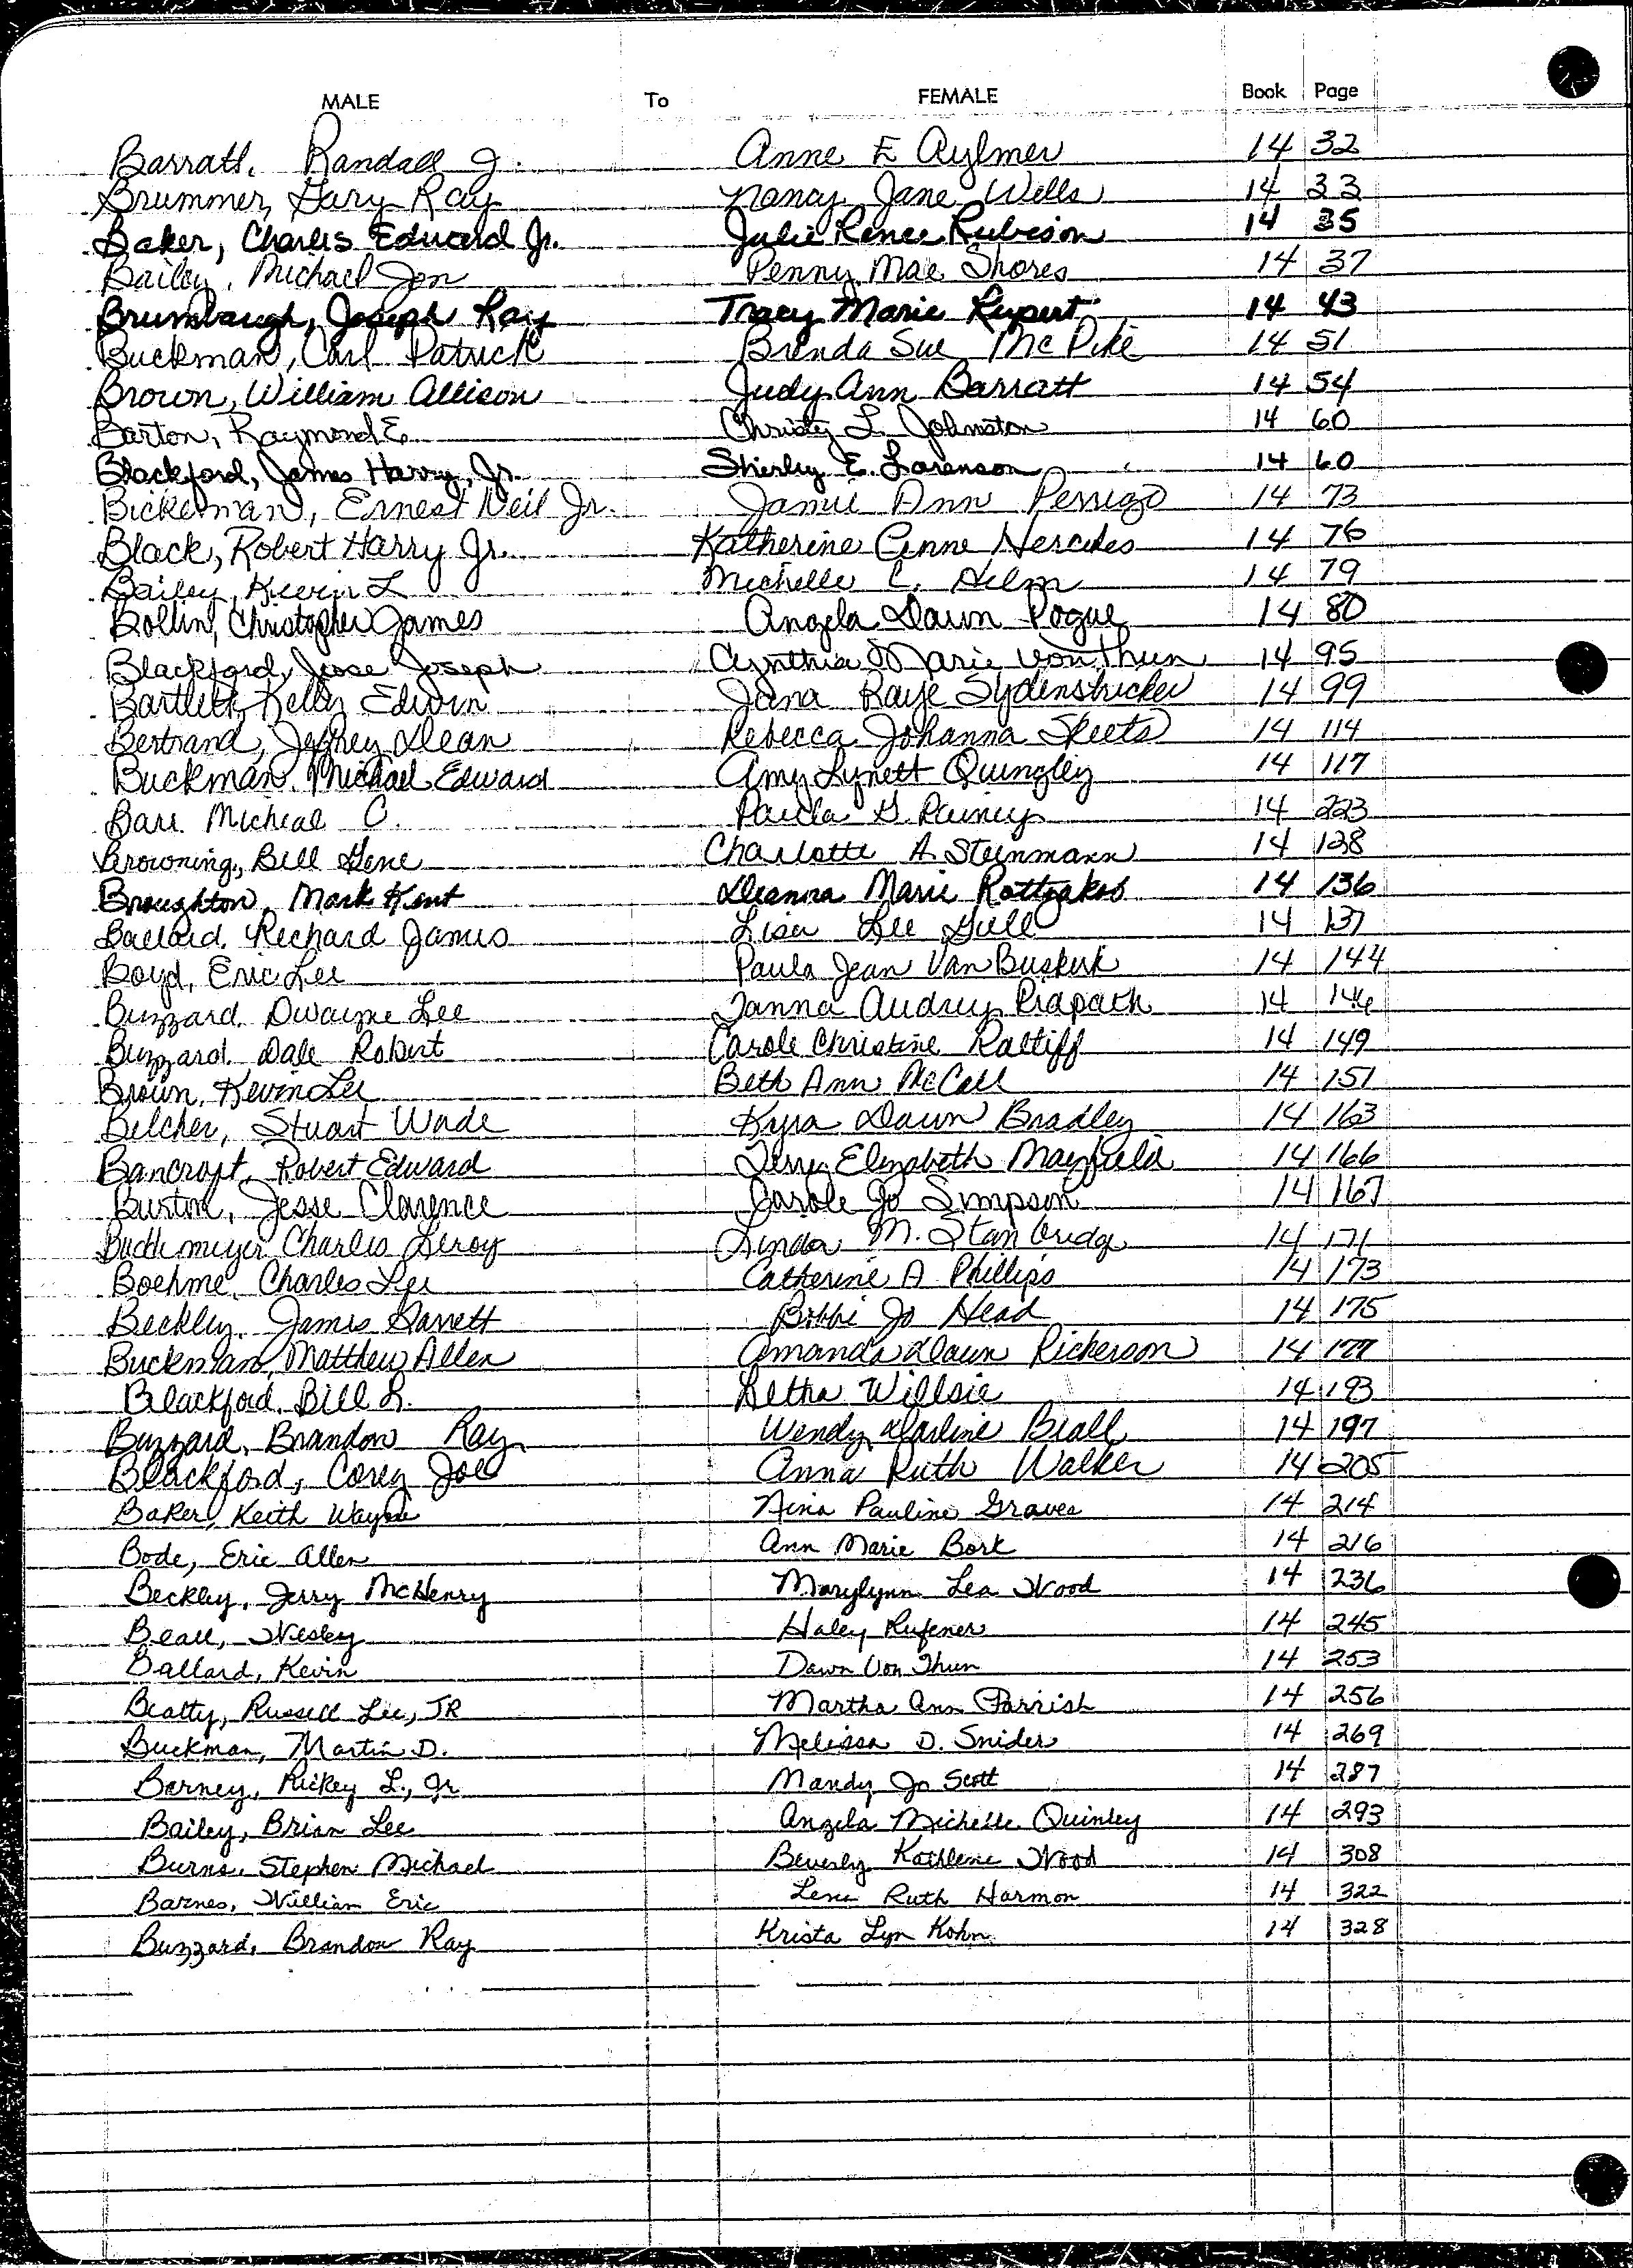 MALE To FEMALE Book Page
Barratt, Randall J. Anne E Aylmer 14 32
Brummer, Gary Ray Nancy Jane Wells 14 33
Baker, Charles Edward Jr. Julie Renee Rubison 14 35
Bailey, Michael Jon Penny Mae Shores 14 37
Brumbaugh, Joseph Ray Tracy Marie Rupert 14 43
Buckman, Carl Patrick Brenda Sue McPike 14 51
Brown, William Allison Judy Ann Barratt 14 54
Barton, Raymond E. Christy L. Johnston 14 60
Blackford, James Harry, Jr. Shirley E. Sorenson 14 60
Bickerman, Ernest Neil Jr. Jamie Ann Perrigo 14 73
Black, Robert Harry Jr. Katherine Anne Hercules 14 76
Bailey, Kevin L Michelle C. Helm 14 79
Bollin, Christopher James Angela Dawn Pogue 14 80
Blackford, Jesse Joseph Cynthia Marie Von Thun 14 95
Bartlett, Kelly Edwin Jana Raye Sydenstricker 14 99
Bertrand, Jeffrey Dean Rebecca Johanna Skeets 14 114
Buckman, Michael Edward Amy Lynett Quingley 14 117
Barr Micheal C. Paula G 14 223
Browning, Bill Gene Charlotte A Steinmann 14 128
Broughton, Mark Kent Deanna Marie Rottjakob 14 136
Ballard, Richard James Lisa Lee Gill 14 137
Boyd, Eric Lee Paula Jean VanBuskirk 14 144
Buzzard, Dwayne Lee Tanna Audrey Prapath 14 146
Buzzard, Dale Robert Carole Christine Ratliff 14 149
Brown, Kevin Lee Beth Ann McCall 14 151
Belcher, Stuart Wade Kyra Dawn Bradley 14 163
Bancroft, Robert Edward Terry Elizabeth Mayfield 14 166
Burton, Jesse Clarence Carole Jo Simpson 14 167
Charles Leroy Linda M. Stanbridge 14 171
Boehme, Charles Lee Catherine A Phillips 14 173
Beckley, James Garrett Bobbi Jo Head 14 175
Buckman, Matthew Allen Amanda Dawn Rickerson 14 177
Blackford, Bill L. Letha Willsie 14 193
Buzzard, Brandon Ray Wendy Darline Beall 14 197
Blackford, Corey Joe Anna Ruth Walker 14 205
Baker, Keith Wayne Nina Pauline Graves 14 214
Bode, Eric Allen Ann Marie Bork 14 216
Beckley, Jerry McHenry Marylynn Lea Wood 14 236
Beall, Wesley Haley Rufener 14 245
Ballard, Kevin Dawn Von Thun 14 253
Beatty, Russell Lee, JR Martha Ann Parrish 14 256
Buckman, Martin D. Melissa D. Snider 14 269
Barney, Rickey L., Jr Mandy Jo Scott 14 287
Bailey, Brian Lee Angela Michelle Quinley 14 293
Burns, Stephen Michael Beverly Kathlene Wood 14 308
Barnes, William Eric Lene Ruth Harmon 14 322
Buzzard, Brandon Ray Krista Lyn Kohn 14 328